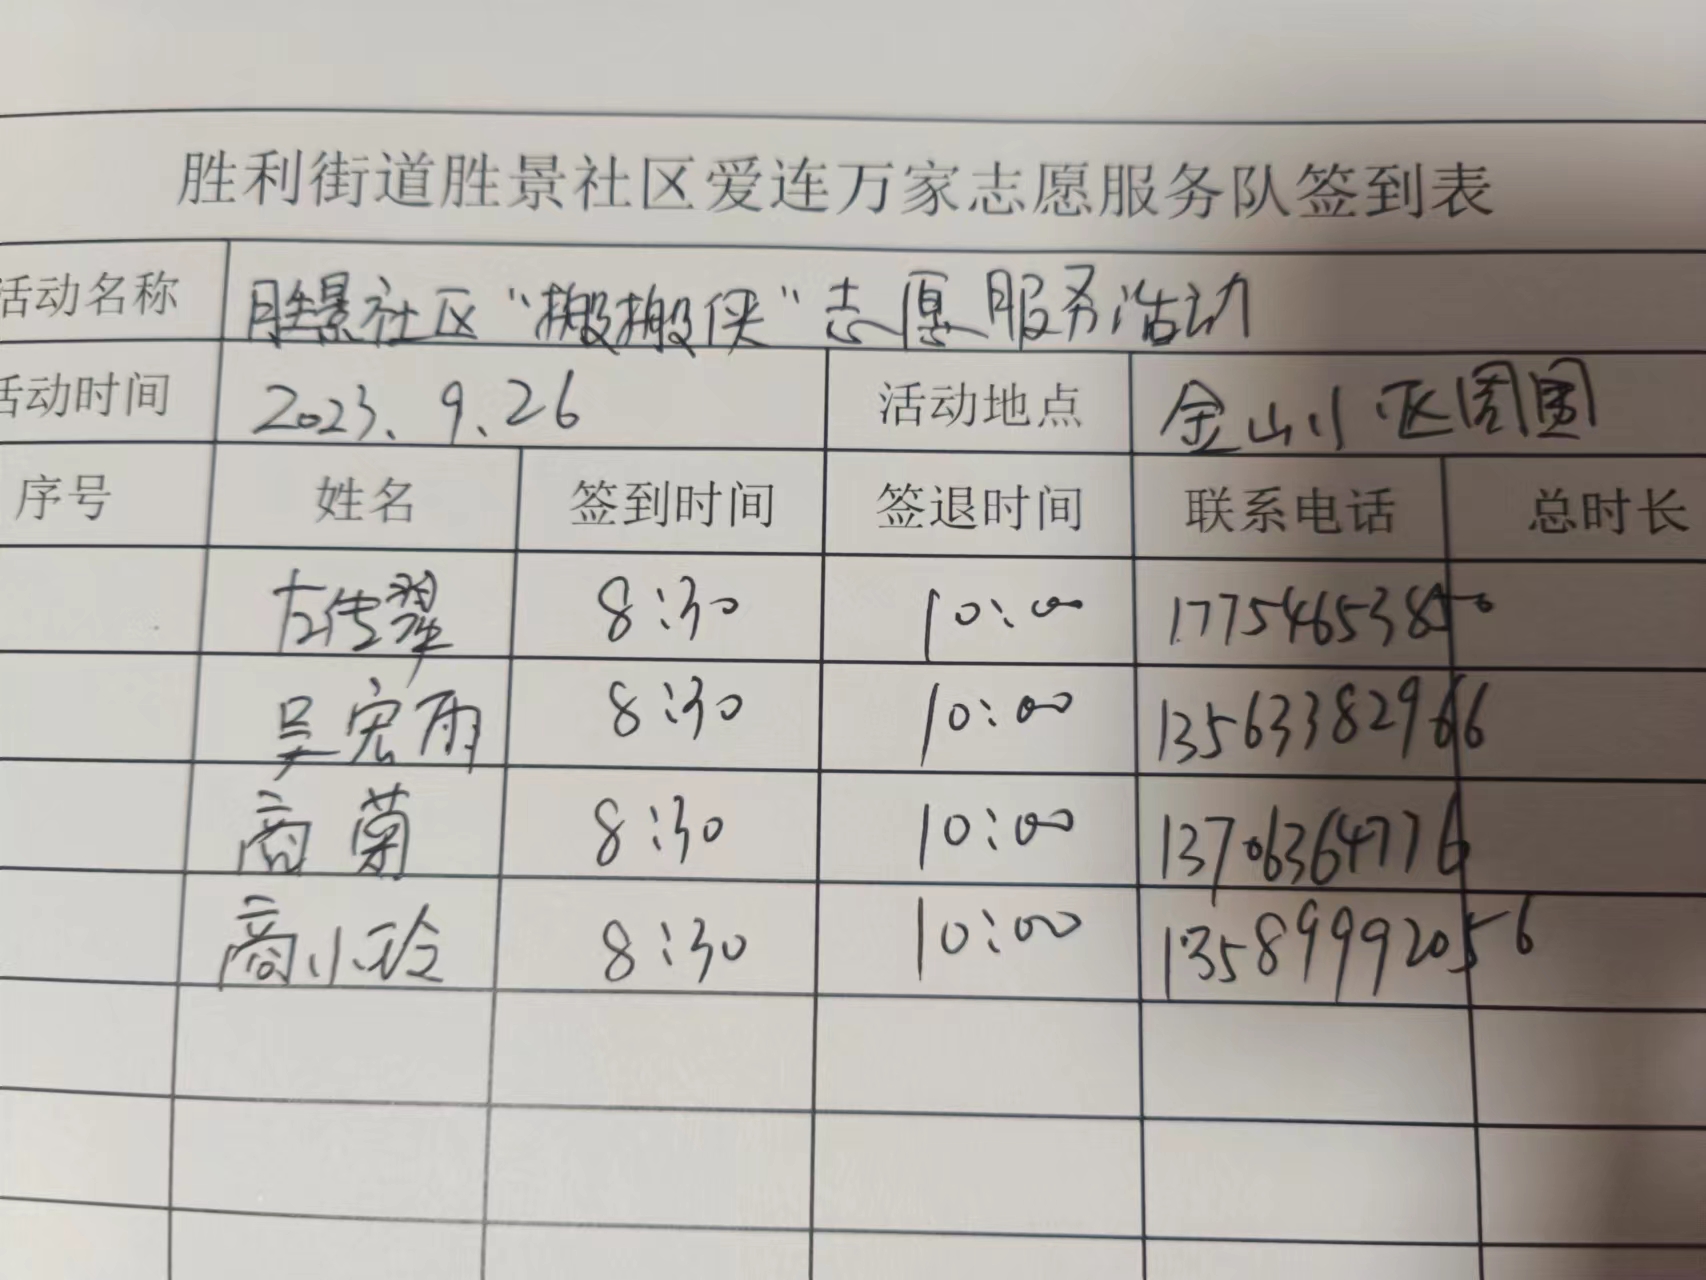 胜利街道胜景社区爱连万家志愿服务队签到表
活动名称 胜景社区“搬搬侠”志愿服务活动
活动时间 2023.9.26 活动地点 金山小区周围
序号 姓名 签到时间 签退时间 联系电话 总时长
左传翠 8:30 10:00 17754653850
吴宏雨 8:30 10:00 13563382966
商菊 8:30 10:00 13706364776
商小玲 8:30 10:00 13589992056